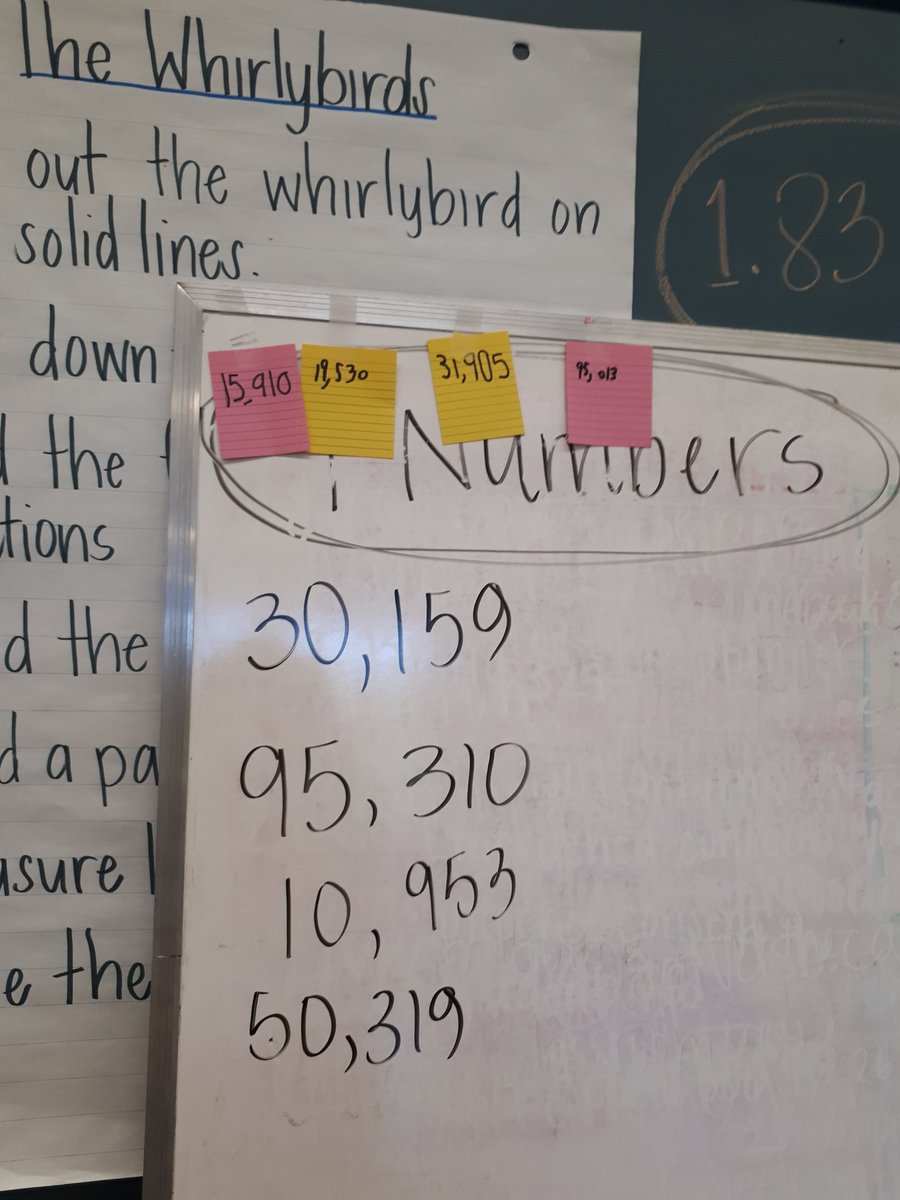 The Whirlybirds
out the whirlybird on
solid lines.
down
the
tions
d the
d a pa
asure
e the
1.83
15,910
19,530
31,905
95,013
Numbers
30,159
95,310
10,953
50,319